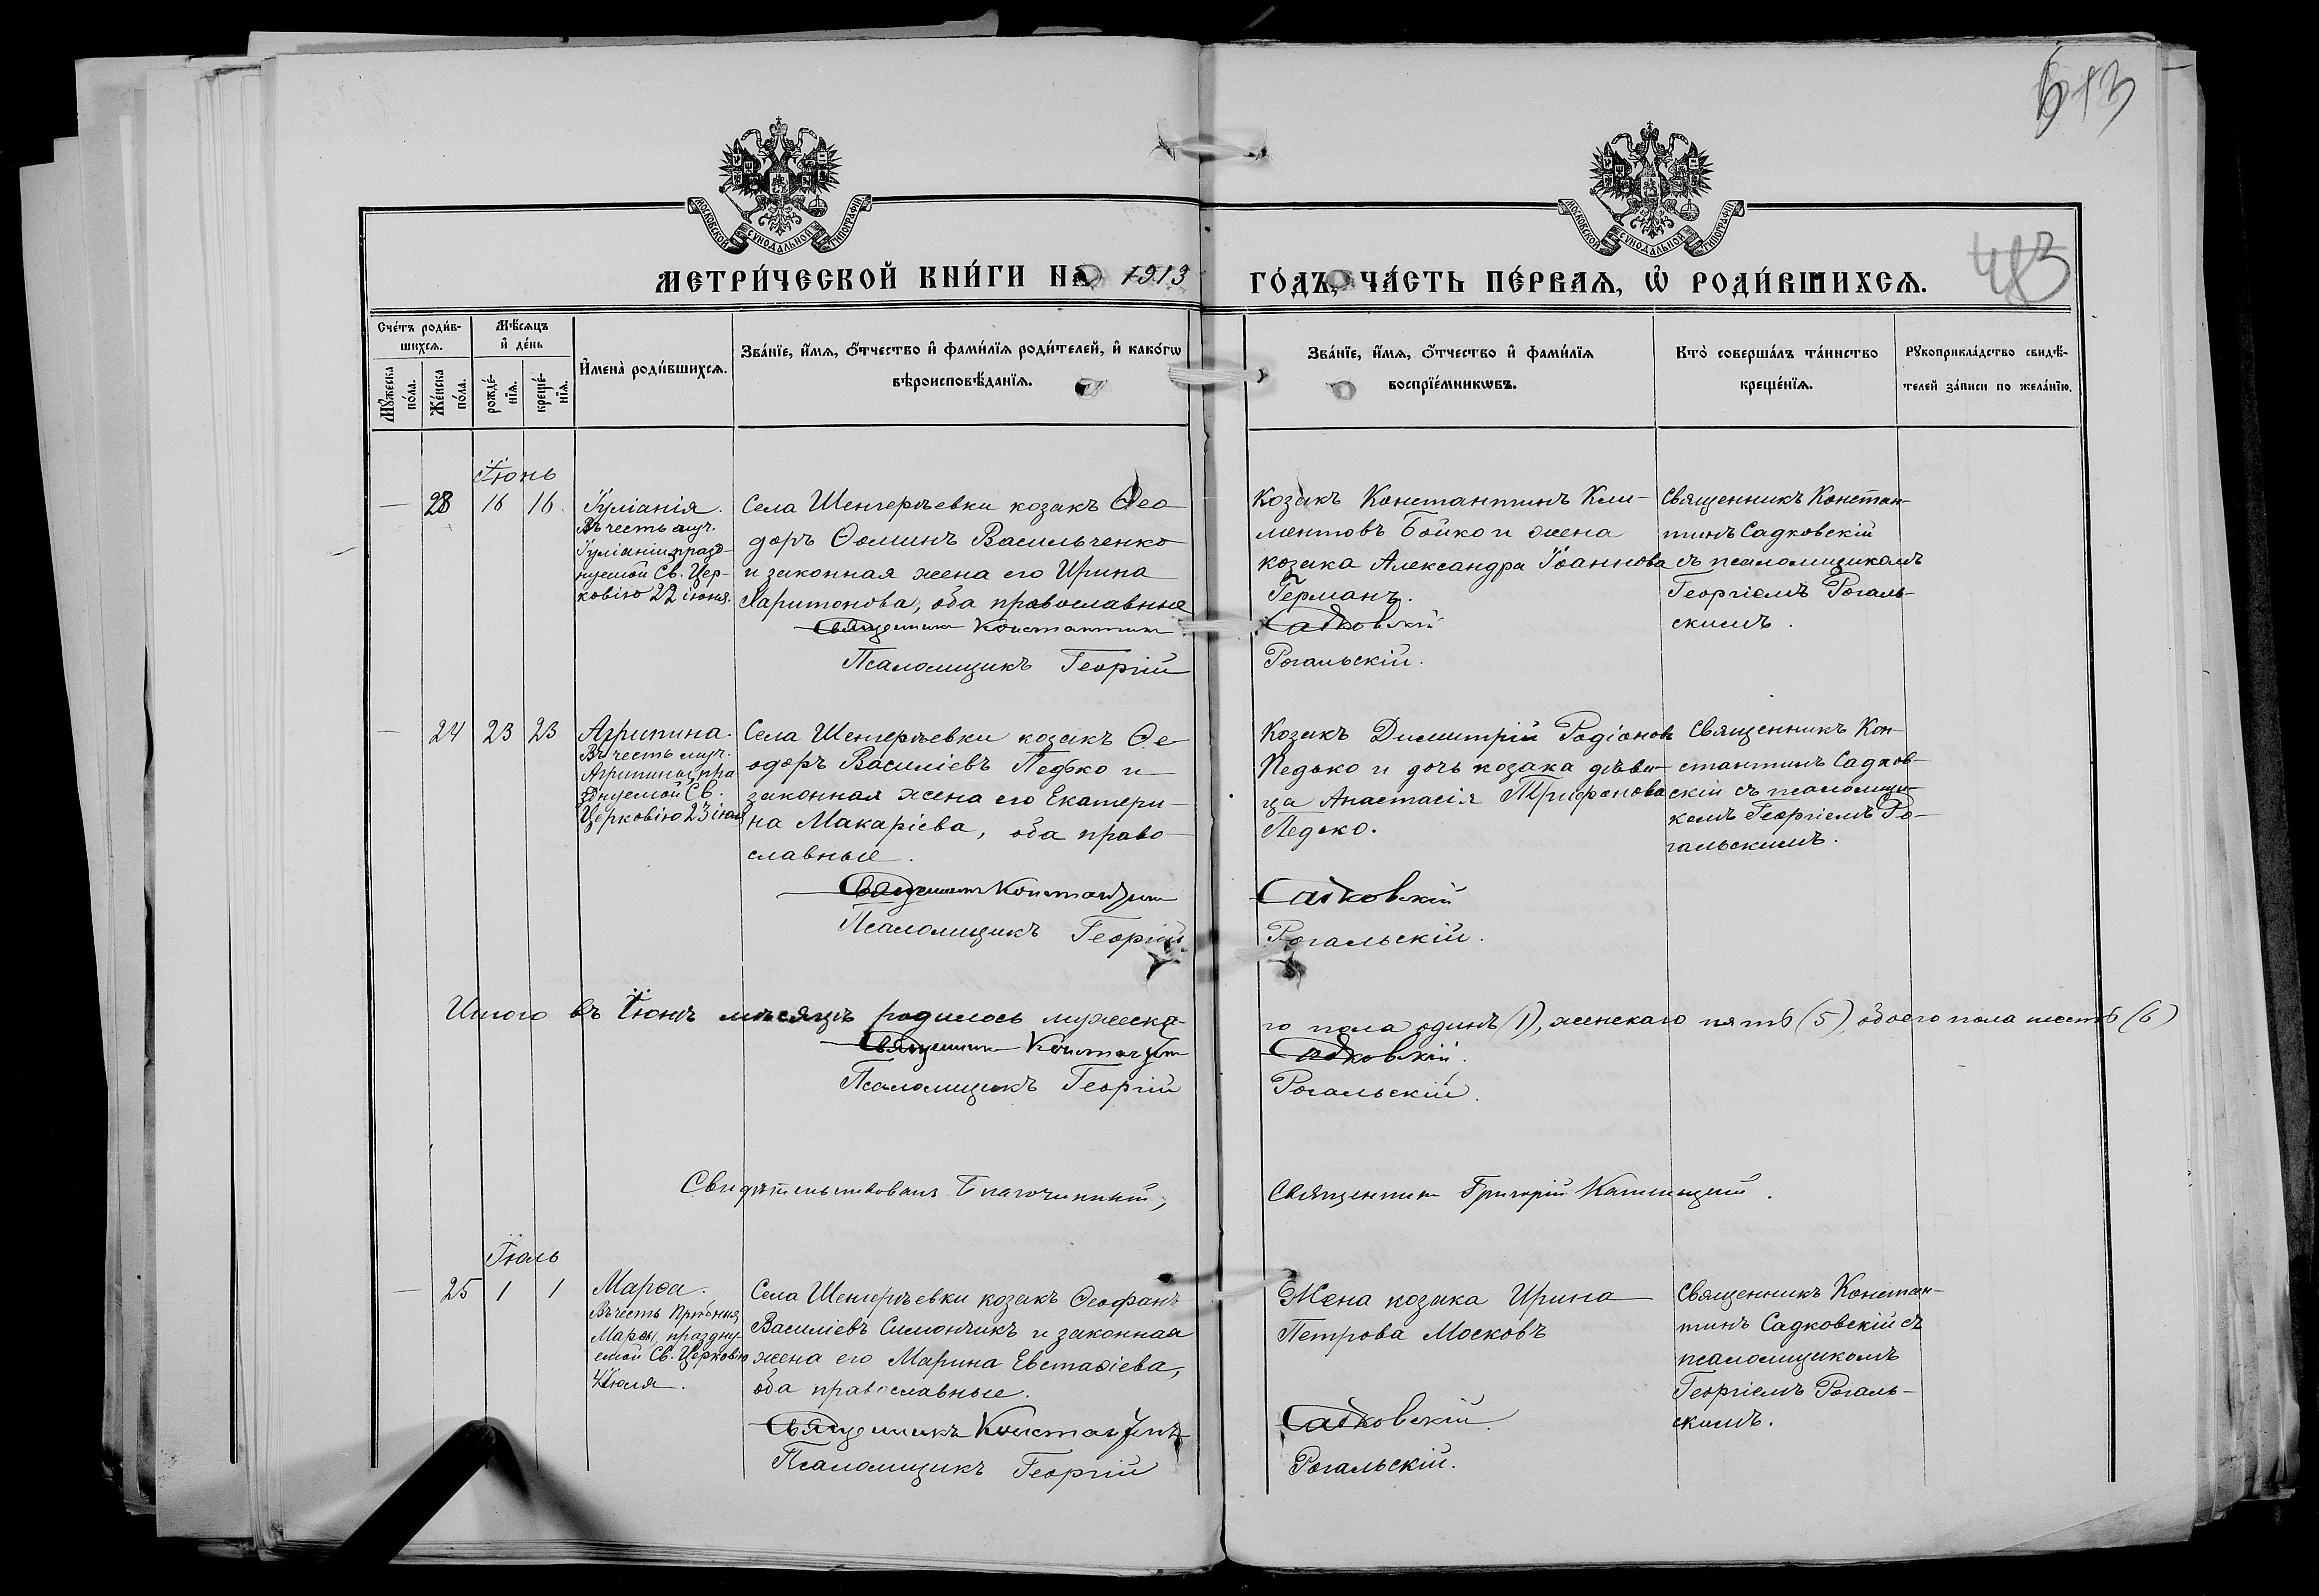 613
МОСКОВСКОЙ СУНОДАЛЬНОЙ ТИПОГРАФІИ
МОСКОВСКОЙ СУНОДАЛЬНОЙ ТИПОГРАФІИ
МЕТРИ́ЧЕСКОЙ КНИ́ГИ НА 1913
ГО́ДЪ, ЧА́СТЬ ПЕ́РВАѦ, Ѡ҆ РОДИ́ВШИХСѦ.
Сче́тъ роди́в-
шихсѧ.
Мꙋ́жеска по́ла.
Же́нска по́ла.
Мѣ́сѧцъ
и҆ де́нь
рожде́-
нїѧ.
креще́-
нїѧ.
И҆мена̀ роди́вшихсѧ.
Зва́нїе, и҆́мѧ, ѻ҆́тчество и҆ фами́лїѧ роди́телей, и҆ како́гѡ
вѣроисповѣ́данїѧ.
Зва́нїе, и҆́мѧ, ѻ҆́тчество и҆ фами́лїѧ
воспрїе́мникѡвъ.
Кто̀ соверша́лъ та́инство
креще́нїѧ.
Рꙋкоприкла́дство свидѣ́-
телей за́писи по жела́нїю.
Іюнь
— 28 16 16
Іуліанія.
Въ честь муч.
Іуліаніи, празд-
нуемой Св. Цер-
ковію 22 іюня.
Села Шенгеръевки козакъ Ѳео-
доръ Ѳоминъ Васильченко
и законная жена его Ирина
Харитонова, оба православные
Священникъ Константин
Псаломщикъ Георгій
Козакъ Константинъ Кли-
ментовъ Бойко и жена
козака Александра Іоаннова
Германъ.
Садковскій
Рогальскій.
Священникъ Констан-
тинъ Садковскій
съ псаломщикомъ
Георгіемъ Рогаль-
скимъ.
— 24 23 23
Агрипина.
Въ честь муч.
Агрипины, пра
зднуемой Св.
Церковію 23 іюня
Села Шенгеръевки козакъ Ѳе-
одоръ Василіевъ Педько и
законная жена его Екатери-
на Макаріева, оба право-
славные.
Священник Константин
Псаломщикъ Георгій
Козакъ Димитрій Родіонов
Педько и дочь козака дѣви-
ца Анастасія Трифонова
Педько.
Садковскій
Рогальскій.
Священникъ Кон-
стантинъ Садков-
скій съ псаломщи-
комъ Георгіемъ Ро-
гальскимъ.
Итого въ Іюнѣ мѣсяцѣ родилось мужеска-
го пола одинъ (1), женскаго пять (5), обоего пола шесть (6)
Священник Константин
Садковскій.
Псаломщикъ Георгій
Рогальскій.
Свидѣтельствовалъ Благочинный,
Священникъ Григорій
Іюль
— 25 1 1
Марѳа.
Въ честь
Марѳы, праздну-
емой Св. Церковію
4 Іюля.
Села Шенгеръевки козакъ Ѳеофанъ
Василіевъ Симончикъ и законная
жена его Марина Евстаѳіева,
оба православные.
Священникъ Константинъ
Псаломщикъ Георгій
Жена козака Ирина
Петрова Московъ
Садковскій.
Рогальскій.
Священникъ Констан-
тинъ Садковскій съ
псаломщикомъ
Георгіемъ Рогаль-
скимъ.